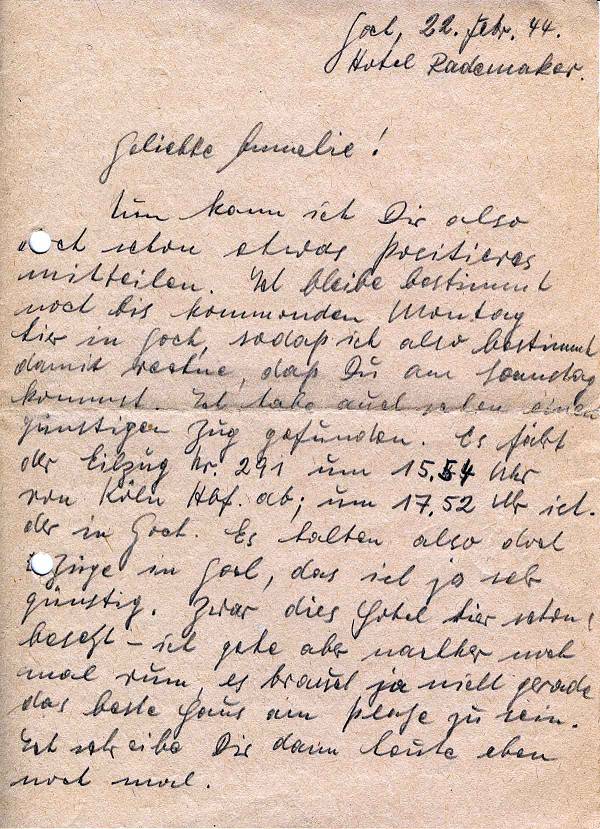 Goch, 22. Febr. 44.
Hotel Rademaker.
Geliebte Annelie!
Nun kann ich Dir also
doch schon etwas Positieves
mitteilen. Ich bleibe bestimmt
noch bis kommenden Montag
hier in Goch, sodaß ich also bestimmt
damit rechne, daß Du am Sonnabend
kommst. Ich habe auch schon einen
günstigen Zug gefunden. Es fährt
der Eilzug Nr. 291 um 15,54 Uhr
von Köln Hbf. ab; um 17,52 Uhr ist
der in Goch. Es halten also doch
Züge in Goch, das ist ja sehr
günstig. Zwar dies Hotel hier schon
besetzt – ich gehe aber nachher noch
mal rum, es braucht ja nicht gerade
das beste Haus am Platze zu sein.
Ich schreibe Dir dann heute eben
noch mal.